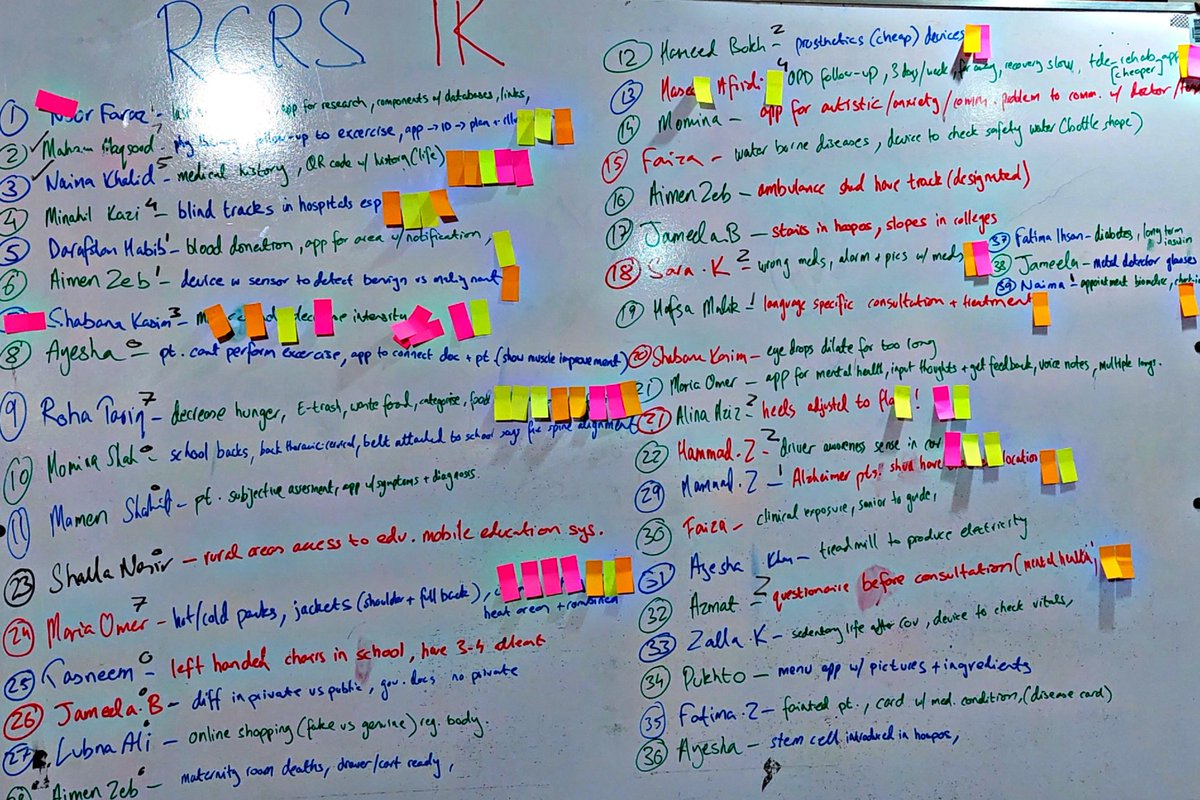 RCRS IK
1 Faraz 1 app for research, components w/ databases, links,
2 Maham Maqsood 7 follow-up to excercise, app → ID → plan +
3 Naina Khalid 5 – medical history, QR code w/ history (life)
4 Minahil Kazi 4 – blind tracks in hospitals esp
5 Darafshan Habib 1 – blood donation, app for area w/ notification,
6 Aimen Zeb 1 – device w sensor to detect benign vs malignant
Shabana Kasim 3 – intensity
8 Ayesha 0 – pt. cant perform exercise, app to connect doc + pt. (show muscle improvement)
9 Roha Tariq 7 – decrease hunger, E-trash, waste food, categorize, food
10 Momina Shah 0 – school backs, back thoracic-cervical, belt attached to school fix spine alignment
11 Mamen Shahid 0 – pt. subjective assesment, app w/ symptoms + diagnosis.
23 Shaila Nasir 0 – rural areas access to edu. mobile education sys.
24 Maria Omer 7 – hot/cold packs, jackets (shoulder + full back),
heat areas + combined
25 Tasneem 0 – left handed chairs in school, have 3-4 atleast
26 Jameela.B 0 – diff in private vs public, gov. docs no private
27 Lubna Ali 0 – online shopping (fake vs genuine) reg. body.
28 Aimen Zeb 0 – maternity room deaths, drawer/cart ready,
12 Hameed Bokh 2 – prosthetics (cheap) devices
13 Afridi 4 OPD follow-up, 3 days/week, far away, recovery slow, tele-rehab app
[cheaper]
14 Momina – app for autistic/anxiety/comm. problem to comm. w/ doctor/
15 Faiza – water borne diseases, device to check safety water (bottle shape)
16 Aimen Zeb – ambulance shud have track (designated)
17 Jameela.B – stairs in hospos, slopes in colleges
18 Sara.K 2 – wrong meds, alarm + pics w/ meds
19 Hafsa Malik 1 – language specific consultation + treatment
20 Shabana Kasim – eye drops dilate for too long
21 Maria Omer – app for mental health, input thoughts + get feedback, voice notes, multiple langs.
21 Alina Aziz 2 – heels adjusted to !
22 Hammad.Z 2 – driver awareness sense in car
29 Hammad.Z 1 Alzheimer pts. shud have location
30 Faiza – clinical exposure, senior to guide,
31 Ayesha Khan – treadmill to produce electricity
32 Azmat 2 – questionaire before consultation (mental health)
33 Zalla K – sedentary life after cov, device to check vitals,
34 Pukhto – menu app w/ pictures + ingredients
35 Fatima.Z – fainted pt., card w/ med. condition, (disease card)
36 Ayesha – stem cell introduced in hospos,
37 Fatima Ihsan – diabetes, long term
insulin
38 Jameela – metal detector glasses
39 Naima 1 – appointment